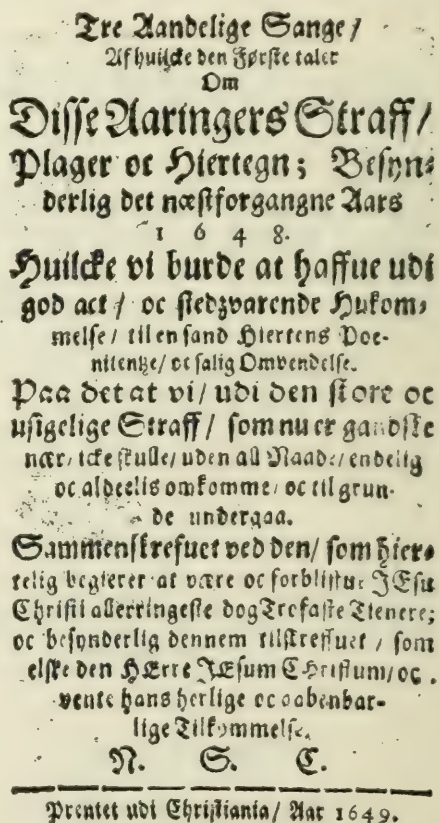 Tre Aandelige Sange /
Af huilcke den Første taler
Om
Disse Aaringers Straff /
Plager oc Hiertegn; Besyn-
derlig det næstforgangne Aars
1648.
Huilcke vi burde at haffue udi
god act / oc stedzvarende Hukom-
melse / til en sand Hiertens Poe-
nitentze / oc salig Omvendelse.
Paa det at vi / udi den store oc
usigelige Straff / som nu er gandske
nær / icke skulle / uden all Naade / endelig
oc aldeelis omkomme / oc til grun-
de undergaa.
Sammenskrefuet ved den / som hier-
telig begierer at være oc forbliffue JEsu
Christi allerringeste dog Trofaste Tienere;
oc besynderlig dennem tilskreffuet / som
elske den HErre JEsum CHristum / oc
vente hans herlige oc aabenbar-
lige Tilkommelse.
N. S. C.
Prentet udi Christiania / Aar 1649.